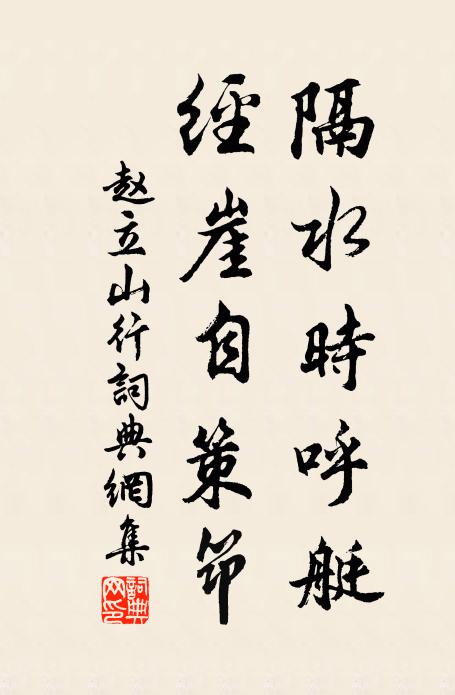 隔水時呼艇
經崖自策筇
赵立山行詞典網集
詞典网印